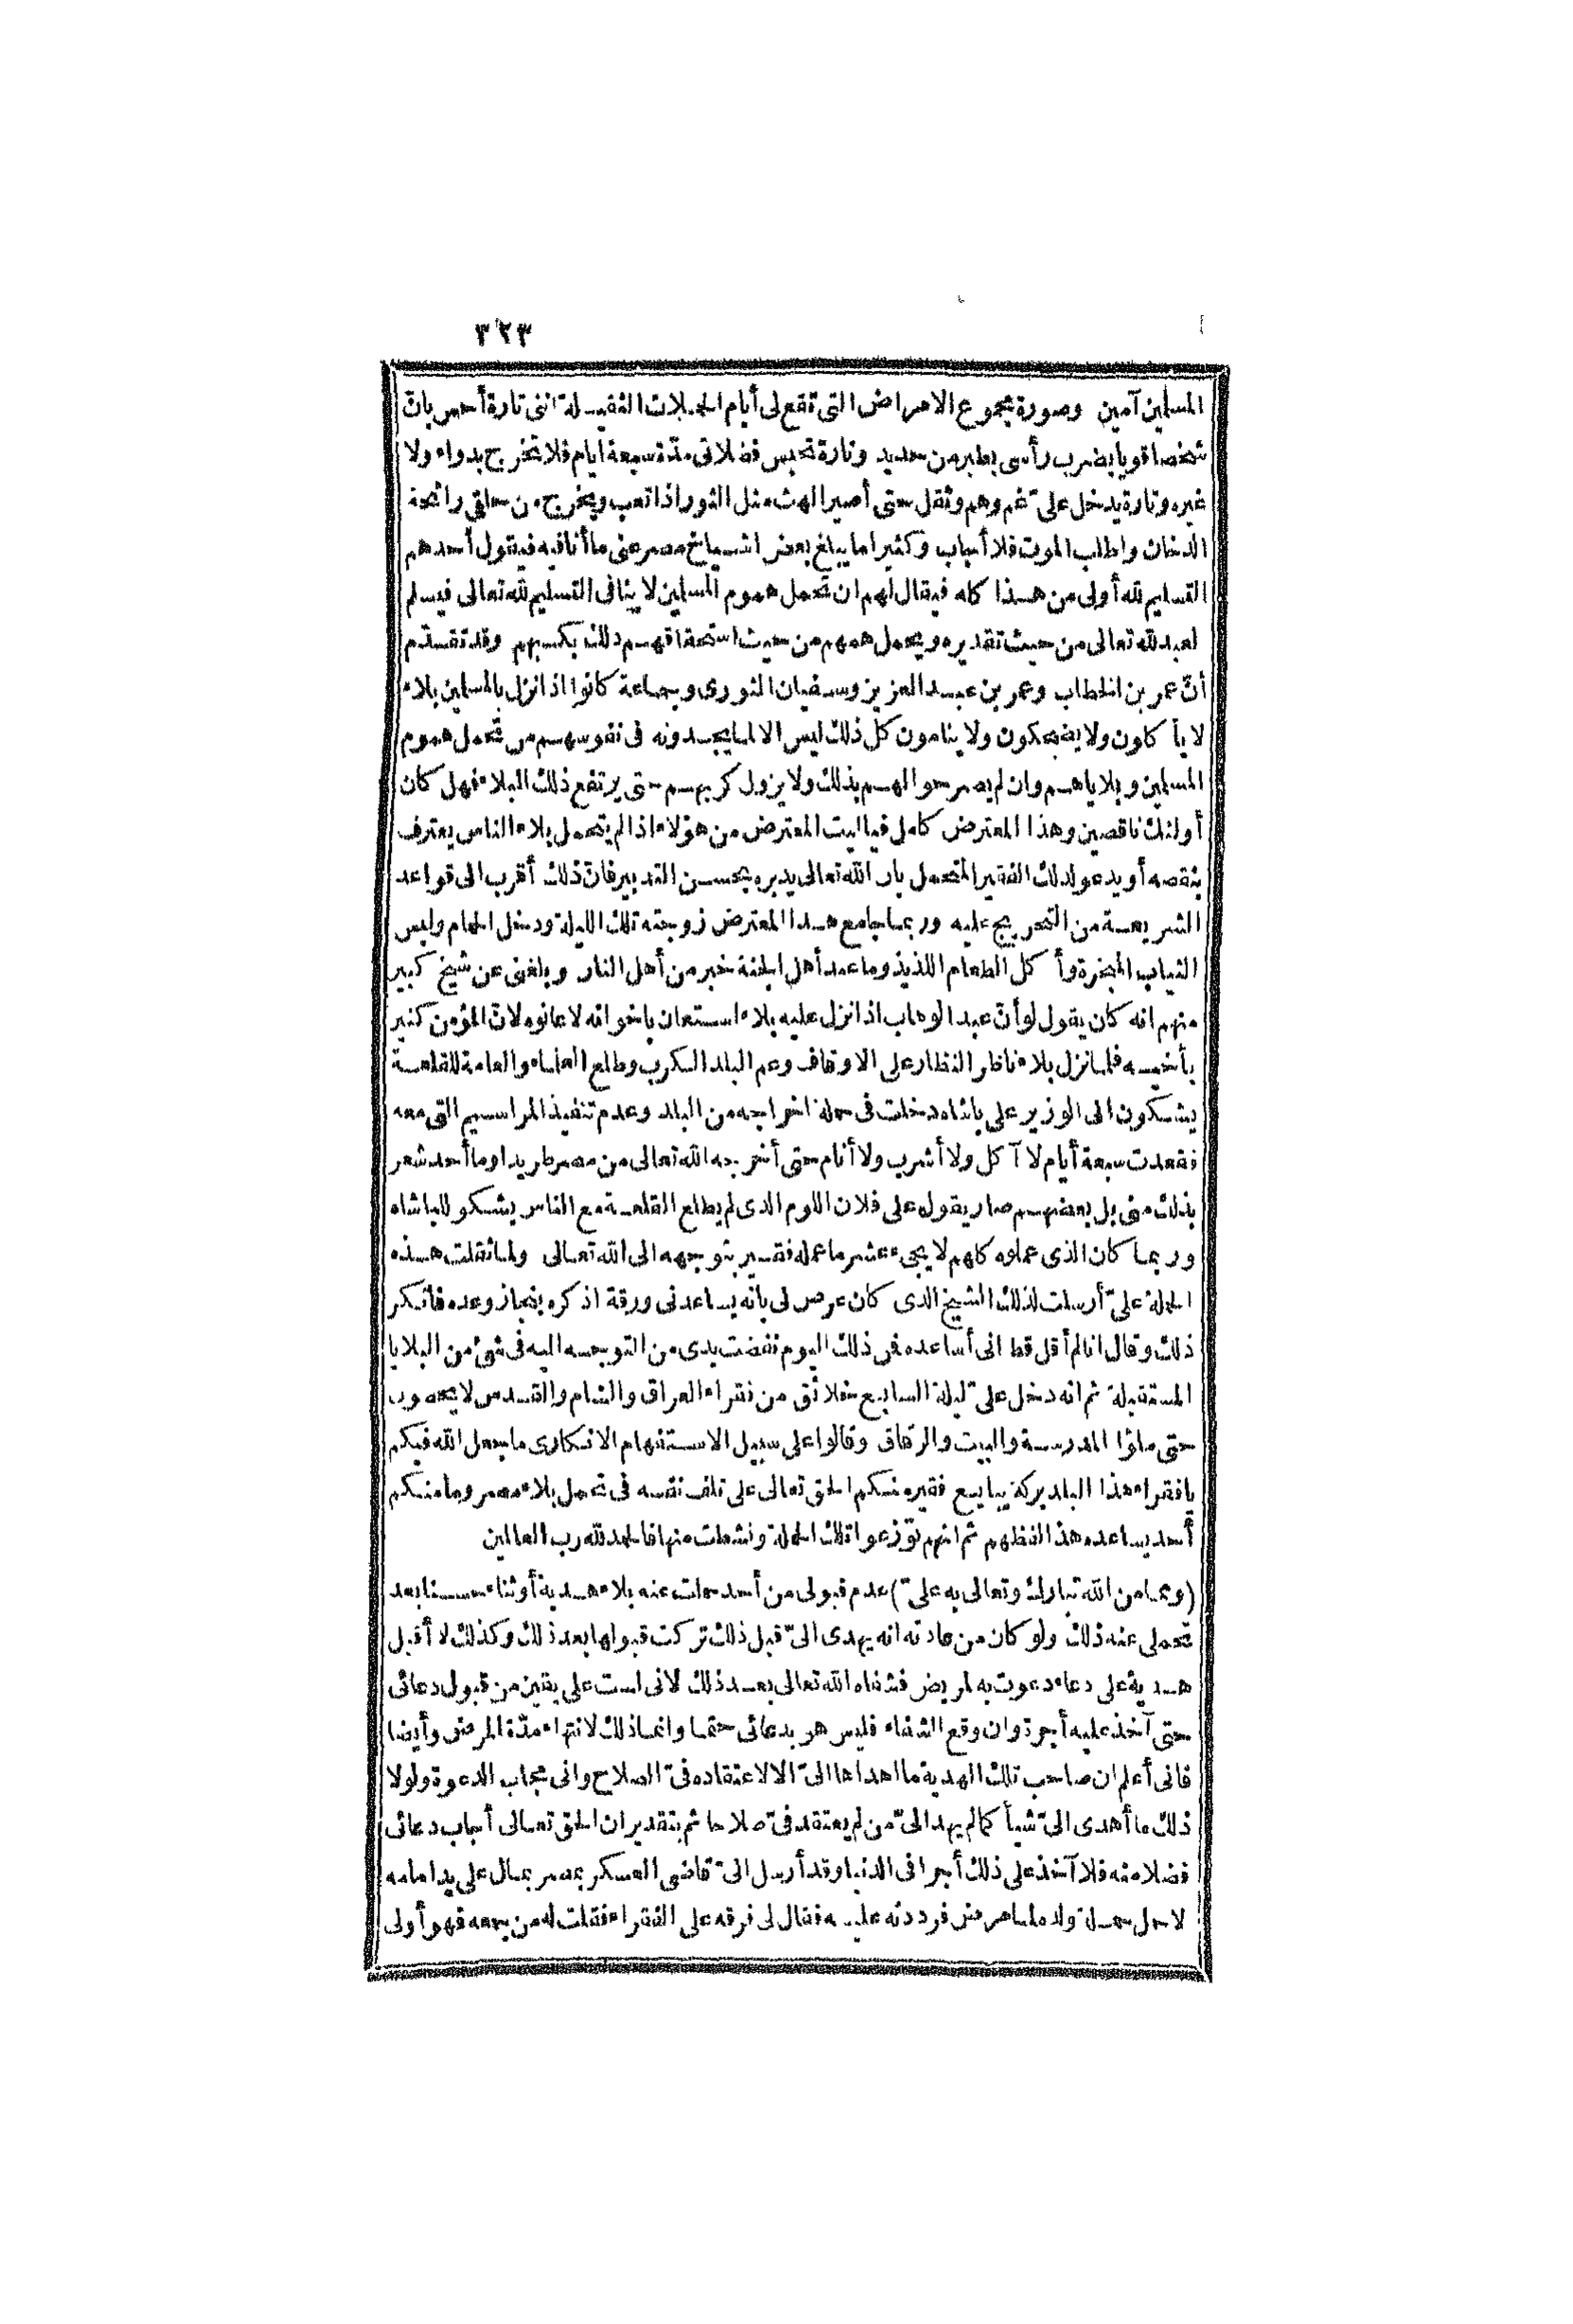 ٣٢٣
المسلمين آمين وصورة مجموع الامراض التى تقع لى أيام الحملات الثقيلة اننى تارة أحس بانّ
شخصا قويا يضرب رأسى بطبر من حديد وتارة تحبس فضلاتى مدّة سبعة ايام فلا تخرج بدواء ولا
غيره وتارة يدخل علىّ غم وهم وثقل حتى أصير الهث مثل الثور اذا تعب ويخرج من حلقى رائحة
الدخان واطلب الموت فلا أجاب وكثيرا ما يبلغ بعض اشياخ مصر عنى ما أنا فيه فيقول أحدهم
التسليم لله أولى من هذا كله فيقال لهم ان تحمل هموم المسلمين لا ينافى التسليم لله تعالى فيسلم
لعبد لله تعالى من حيث تقديره ويحمل همهم من حيث استحقاقهم ذلك بكسبهم وقد تقدّم
أنّ عمر بن الخطاب وعمر بن عبد العزيز وسفيان الثورى وجماعة كانوا اذا نزل بالمسلمين بلاء
لا يأكاون ولا يضحكون ولا ينامون كل ذلك ليس الا لما يجدونه فى نفوسهم من تحمل هموم
المسلمين وبلاياهم وان لم يصرحوا لهم بذلك ولا يزول كربهم حتى يرتفع ذلك البلاء فهل كان
أولئك ناقصين وهذا المعترض كامل فياليت المعترض من هؤلاء اذا لم يتحمل بلاء الناس يعترف
بنقصه أو يدعو لذلك الفقير المتحمل بان الله تعالى يدبره بحسن التدبير فانّ ذلك أقرب الى قواعد
الشريعة من التحريج عليه وربما جامع هذا المعترض زوجته تلك الليلة ودخل الحمام ولبس
الثياب المبخرة وأكل الطعام اللذيذ وما عند أهل الجنة خبر من أهل النار وبلغنى عن شيخ كبير
منهم انه كان يقول لو أنّ عبد الوهاب اذا نزل عليه بلاء استعان باخوانه لاعانوه لانّ المؤمن كثير
بأخيه فلما نزل بلاء ناظر النظار على الاوقاف وعم البلد الكرب وطلع العلماء والعامة للقلعة
يشكون الى الوزير على باشاه دخلت فى حملة اخراجه من البلد وعدم تنفيذ المراسيم التى معه
فقعدت سبعة أيام لا آكل ولا أشرب ولا أنام حتى أخرجه الله تعالى من مصر طريدا وما أحد شعر
بذلك منى بل بعضهم صار يقول على فلان اللوم الذى لم يطلع القلعة مع الناس يشكو للباشاه
وربما كان الذى عملوه كلهم لا يجىء عشر ما عمله فقير بتوجهه الى الله تعالى ولما ثقلت هذه
الحملة علىّ أرسلت لذلك الشيخ الذى كان عرض لى بانه يساعدنى ورقة اذكره بنجاز وعده فأنكر
ذلك وقال انا لم أقل قط انى أساعده فن ذلك اليوم نفضت يدى من التوجه اليه فى شئ من البلايا
المستقبلة ثم انه دخل علىّ ليلة السابع خلائق من فقراء العراق والشام والقدس لا يحصون
حتى ملؤا المدرسة والبيت والزقاق وقالوا على سبيل الاستفهام الانكارى ما بجعل الله فيكم
يا فقراء هذا البلد بركة يبايع فقير منكم الحق تعالى على تلف نفسه فى تحمل بلاء مصر وما منكم
أحد يساعده هذا لفظهم ثم انهم توّزعوا تلك الحملة ونشطت منها فالحمد لله رب العالمين
(ومما من الله تبارك وتعالى به علىّ) عدم قبولى من أحد حملت عنه بلاء هدية أو ثناء حسنا بعد
تحملى عنه ذلك ولو كان من عادته انه يهدى الىّ قبل ذلك تركت قبولها بعد ذلك وكذلك لا أقبل
هدية على دعاء دعوت به لمريض فشفاه الله تعالى بعد ذلك لانى لست على يقين من قبول دعائى
حتى آخذ عليه أجرة وان وقع الشفاء فليس هو بدعائى حتما وانما ذلك لانتهاء مدّة المرض وأيضا
فانى أعلم ان صاحب تلك الهدية ما اهداها الىّ الا لاعتقاده فىّ الصلاح وانى مجاب الدعوة ولولا
ذلك ما أهدى الىّ شيأ كما لم يهد الىّ من لم يعتقد فىّ صلاحا ثم بتقدير ان الحق تعالى أجاب دعائى
فضلا منه فلا آخذ على ذلك أجرا فى الدنيا وقد أرسل الىّ قاضى العسكر بمصر بمال على يد امامه
لاجل حملة ولده لما مرض فرددته عليه فقال لى فرقه على الفقراء فقلت له من جمعه فهو أولى